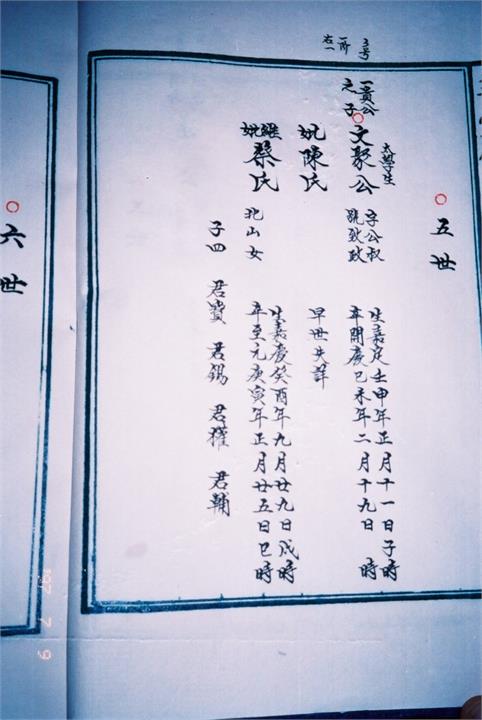 3号
一所
右一
五世
太學生
一貫公
之子
文聚公
字公叔
號致政
生嘉定壬申年正月十一日子時
卒開慶己未年二月十九日 時
妣陳氏
早世失詳
繼妣蔡氏
北山女
生嘉慶癸酉年九月廿九日戌時
卒至元庚寅年正月廿五日巳時
子四 君賚 君錫 君擢 君輔
六世
'97 7 9